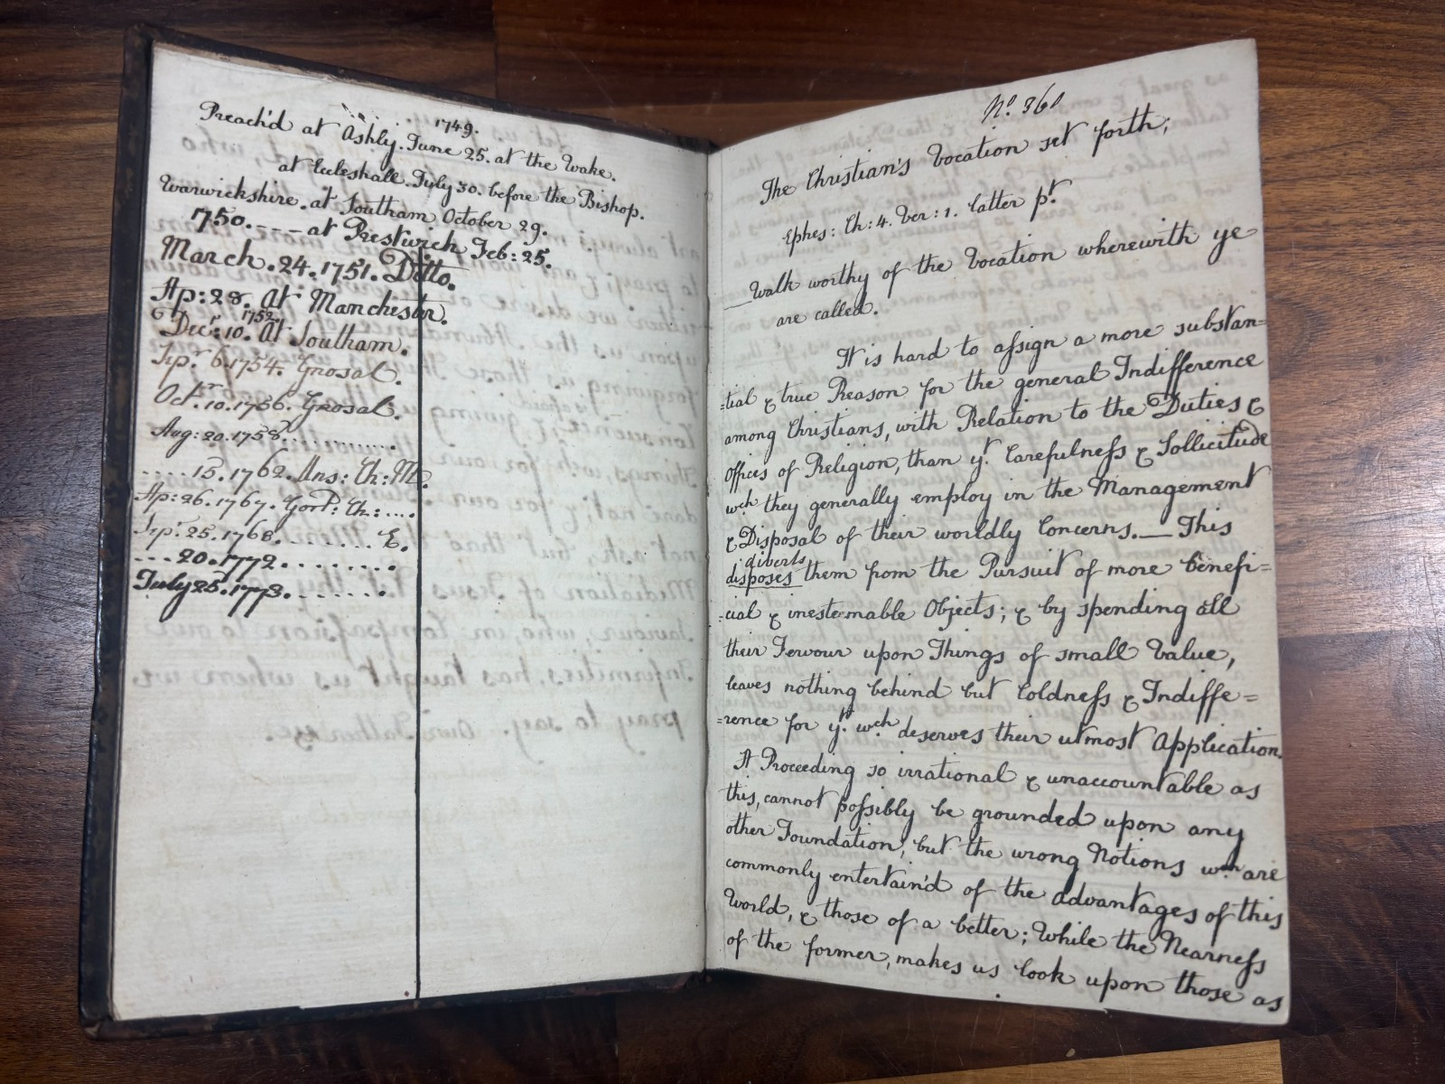 1749.
Preach'd at Ashly. June 25. at the Wake.
at Eccleshall. July 30. before the Bishop.
Warwickshire. at Southam October 29.
1750. --- at Prestwich Feb: 25.
March. 24. 1751. Ditto.
Ap: 28. At Manchester.
1752.
Decr. 10. At Southam.
Sepr. 6. 1754. Grosal.
Octr. 10. 1756. Grosal.
Aug: 20. 1758. ............
.... 15. 1762. Ans: Ch: M.
Ap: 26. 1767. Gort: Ch: ....
Sepr. 25. 1768. ....... E.
... 20. 1772. ........
July 25. 1773. .......
No. 360
The Christian's Vocation set forth;
Ephes: Ch: 4. Ver: 1. latter pt.
Walk worthy of the Vocation wherewith ye
are called.
It is hard to assign a more substan=
=tial & true Reason for the general Indifference
among Christians, with Relation to the Duties &
Offices of Religion, than yt. Carefulness & Sollicitude
wch they generally employ in the Management
& Disposal of their worldly Concerns. — This
diverts
disposes them from the Pursuit of more benefi=
=cial & inestemable Objects; & by spending all
their Fervour upon Things of small Value,
leaves nothing behind but Coldness & Indiffe=
=rence for yt. wch deserves their utmost Application.
A Proceeding so irrational & unaccountable as
this, cannot possibly be grounded upon any
other Foundation, but the wrong Notions wch are
commonly entertain'd of the advantages of this
World, & those of a better; While the Nearness
of the former, makes us look upon those as